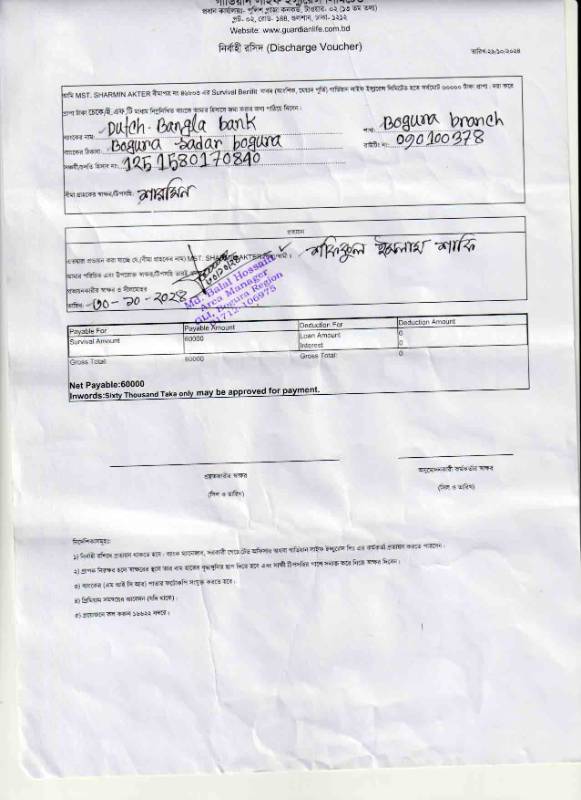 গার্ডিয়ান লাইফ ইন্স্যুরেন্স লিমিটেড
প্রধান কার্যালয়:- পুলিশ প্লাজা কনকর্ড, টাওয়ার- ০২ (১৩ তম তলা)
প্লট- ০২, রোড- ১৪৪, গুলশান, ঢাকা- ১২১২
Website: www.guardianlife.com.bd
নির্বাহী রসিদ (Discharge Voucher)
তারিখ:২৯/১০/২০২৪
আমি MST. SHARMIN AKTER বীমাপত্র নং এর Survival Benfit বাবদ (আংশিক, মেয়াদ পূর্তি) গার্ডিয়ান লাইফ ইন্স্যুরেন্স লিমিটেড হতে সর্বমোট ৬০০০০ টাকা প্রাপ্য। দয়া করে
প্রাপ্য টাকা চেকে/ই.এফ.টি মাধ্যমে নিম্নলিখিত ব্যাংকে আমার হিসাবে জমা করার জন্য পাঠিয়ে দিবেন।
ব্যাংকের নাম: Dutch-Bangla bank শাখা: Bogura branch
ব্যাংকের ঠিকানা: Bogura Sadar bogura রাউটিং নং: 090100378
সঞ্চয়ী/চলতি হিসাব নং: 1251580170840
বীমা গ্রাহকের স্বাক্ষর/টিপসহি: শারমিন
প্রত্যয়ন
এতদ্বারা প্রত্যয়ন করা যাচ্ছে যে,(বীমা গ্রাহকের নাম) MST. SHARMIN AKTER শফিকুল ইসলাম শাফি
আমার পরিচিত এবং উপরোক্ত স্বাক্ষর/টিপসহি তারই
প্রত্যয়নকারীর স্বাক্ষর ও সীলমোহর
তারিখ: ৩০-১০-২০২৪
Md. Balal Hossain
Area Manager
GLI, Bogura Region
01712-106975
Payable For Payable Amount Deduction For Deduction Amount
Survival Amount 60000 Loan Amount 0
Interest 0
Gross Total: 60000 Gross Total: 0
Net Payable:60000
Inwords:Sixty Thousand Taka only may be approved for payment.
গ্রহণকারীর স্বাক্ষর অনুমোদনকারী কর্মকর্তার স্বাক্ষর
(সিল ও তারিখ) (সিল ও তারিখ)
নির্দেশিকাসমূহ:
১) নির্বাহী রশিদে প্রত্যয়ন থাকতে হবে। ব্যাংক ম্যানেজার, সরকারী গেজেটেড অফিসার অথবা গার্ডিয়ান লাইফ ইন্স্যুরেন্স লিঃ এর কর্মকর্তা প্রত্যয়ন করতে পারবেন।
২) গ্রাহক নিরক্ষর হলে স্বাক্ষরের স্থলে তার বাম হাতের বৃদ্ধাঙ্গুলির ছাপ দিতে হবে এবং সাক্ষী টিপসহির পাশে সনাক্ত করে নিজে স্বাক্ষর দিবেন।
৩) ব্যাংকের (এম আই সি আর) পাতার ফটোকপি সংযুক্ত করতে হবে।
৪) প্রিমিয়াম সমন্বয়ের আবেদন (যদি থাকে)।
৫) প্রয়োজনে কল করুন ১৬৬২২ নম্বরে।